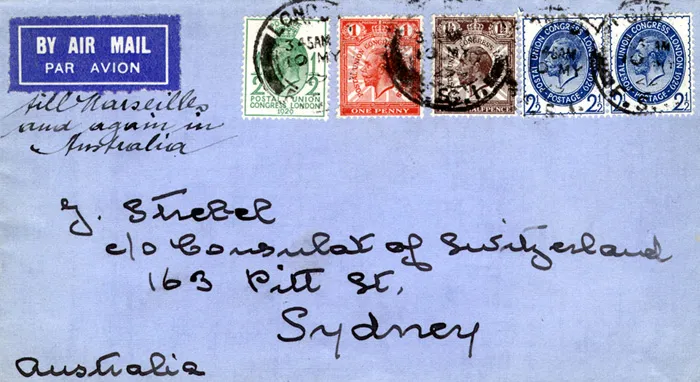 BY AIR MAIL
PAR AVION
till Marseilles
and again in
Australia
POSTAL UNION
CONGRESS LONDON
1929
1 1
POSTAL UNION CONGRESS
ONE PENNY
HALFPENCE
POSTAL UNION CONGRESS LONDON
POSTAGE
2½ 2½
POSTAL UNION CONGRESS LONDON
POSTAGE
2½ 2½
LONDON
3.15AM
10 MY
J. Strebel
c/o Consulat of Switzerland
163 Pitt St.
Sydney
Australia